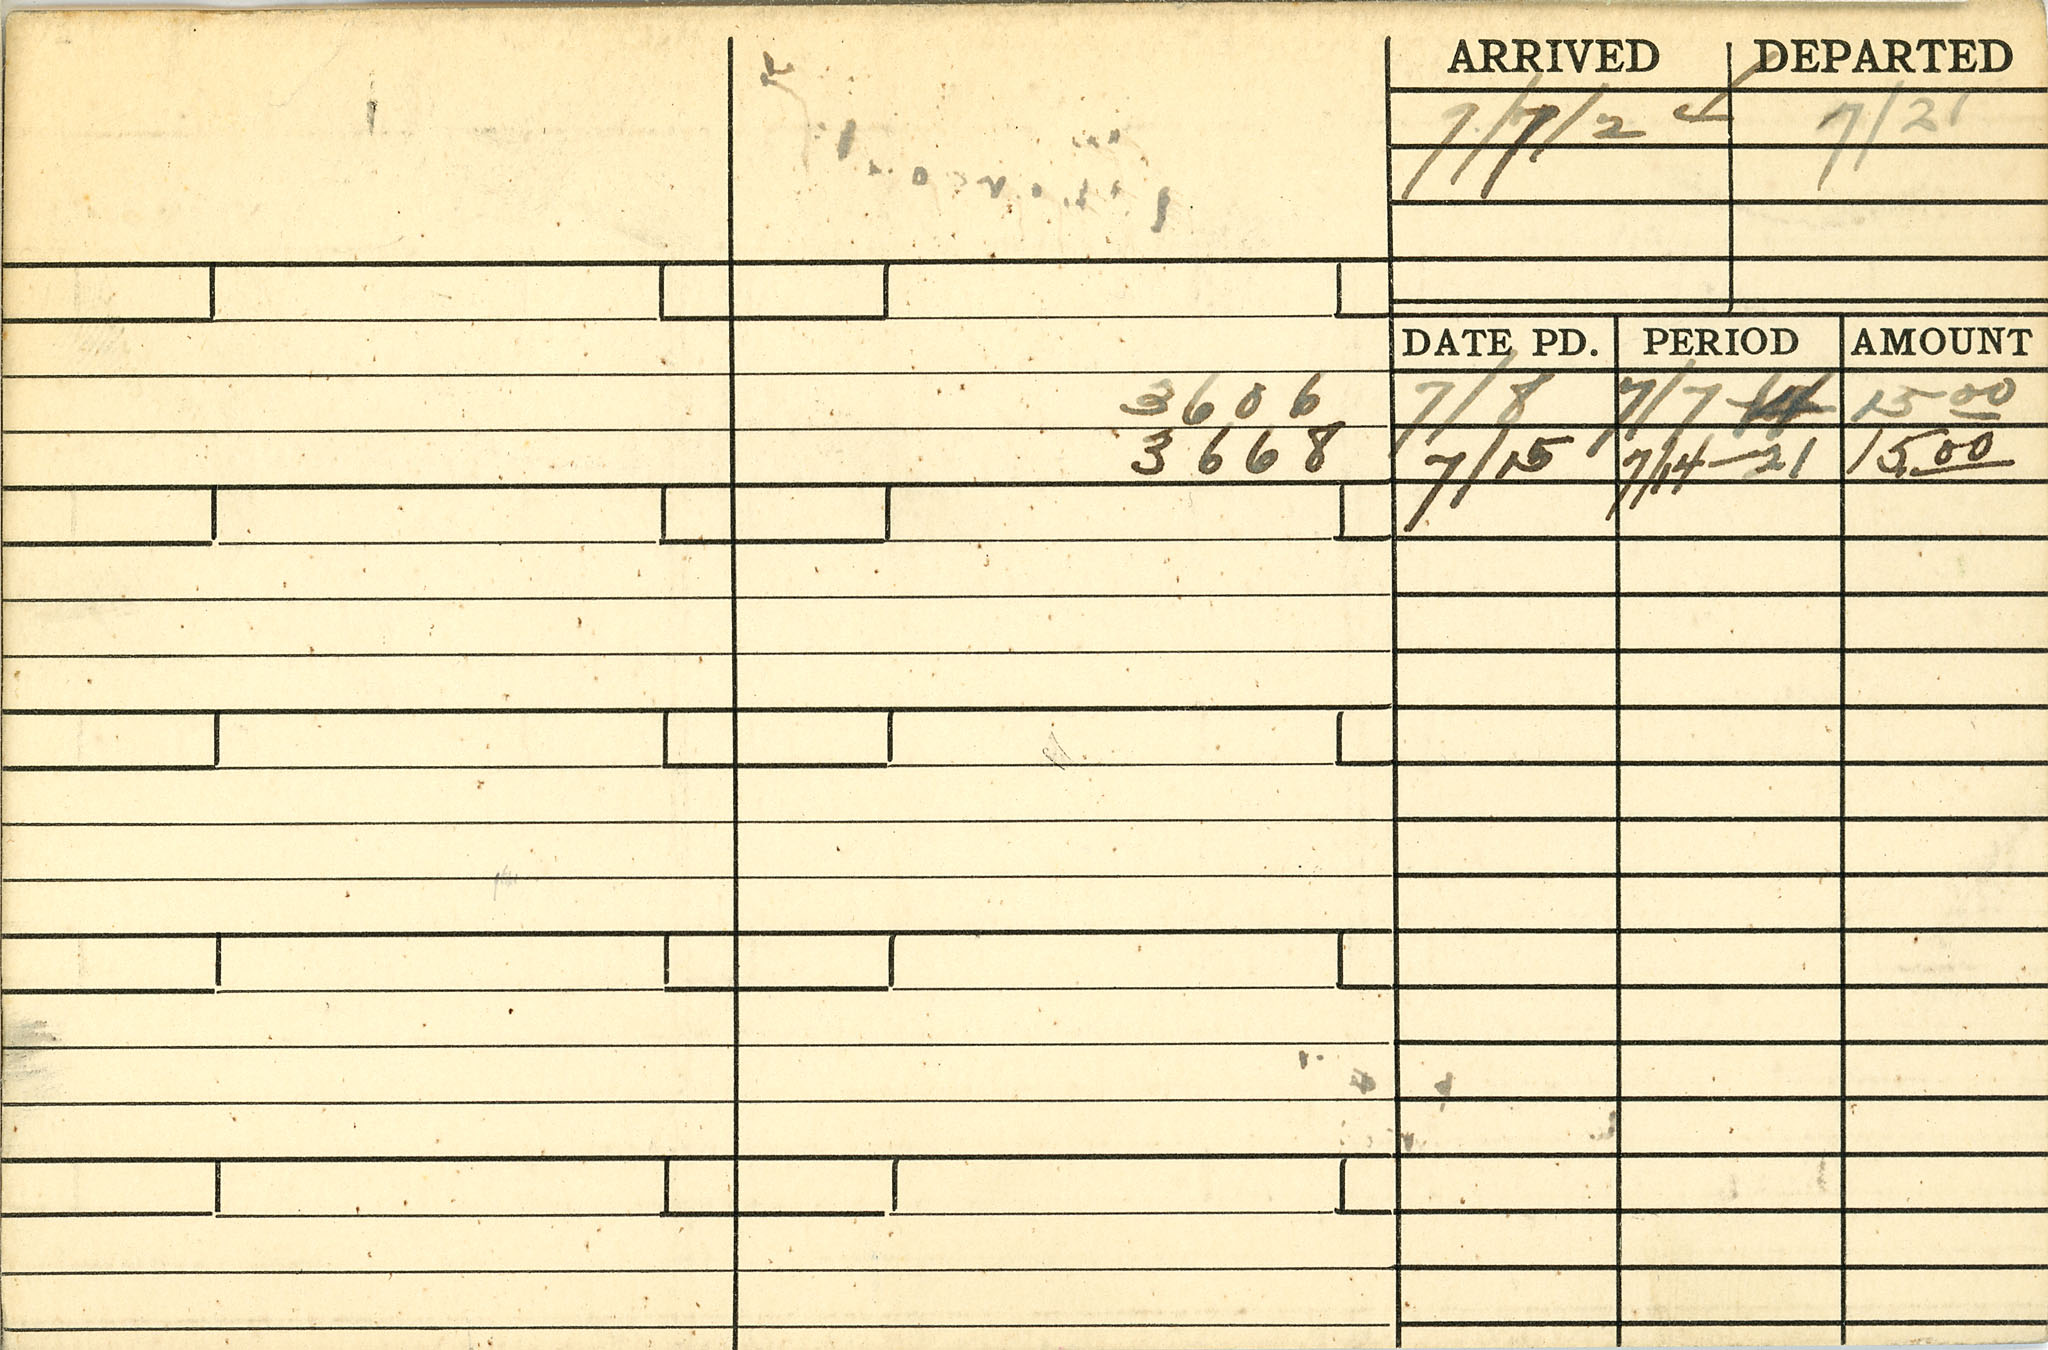 ARRIVED DEPARTED
7/7/2 7/21
DATE PD. PERIOD AMOUNT
3606 7/8 7/7-14 15 00
3668 7/15 7/14-21 15.00